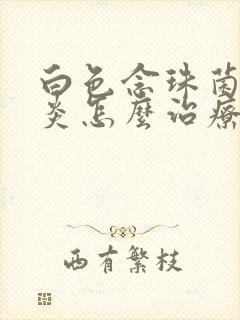 白色念珠菌
炎怎麼治療
西有繁枝